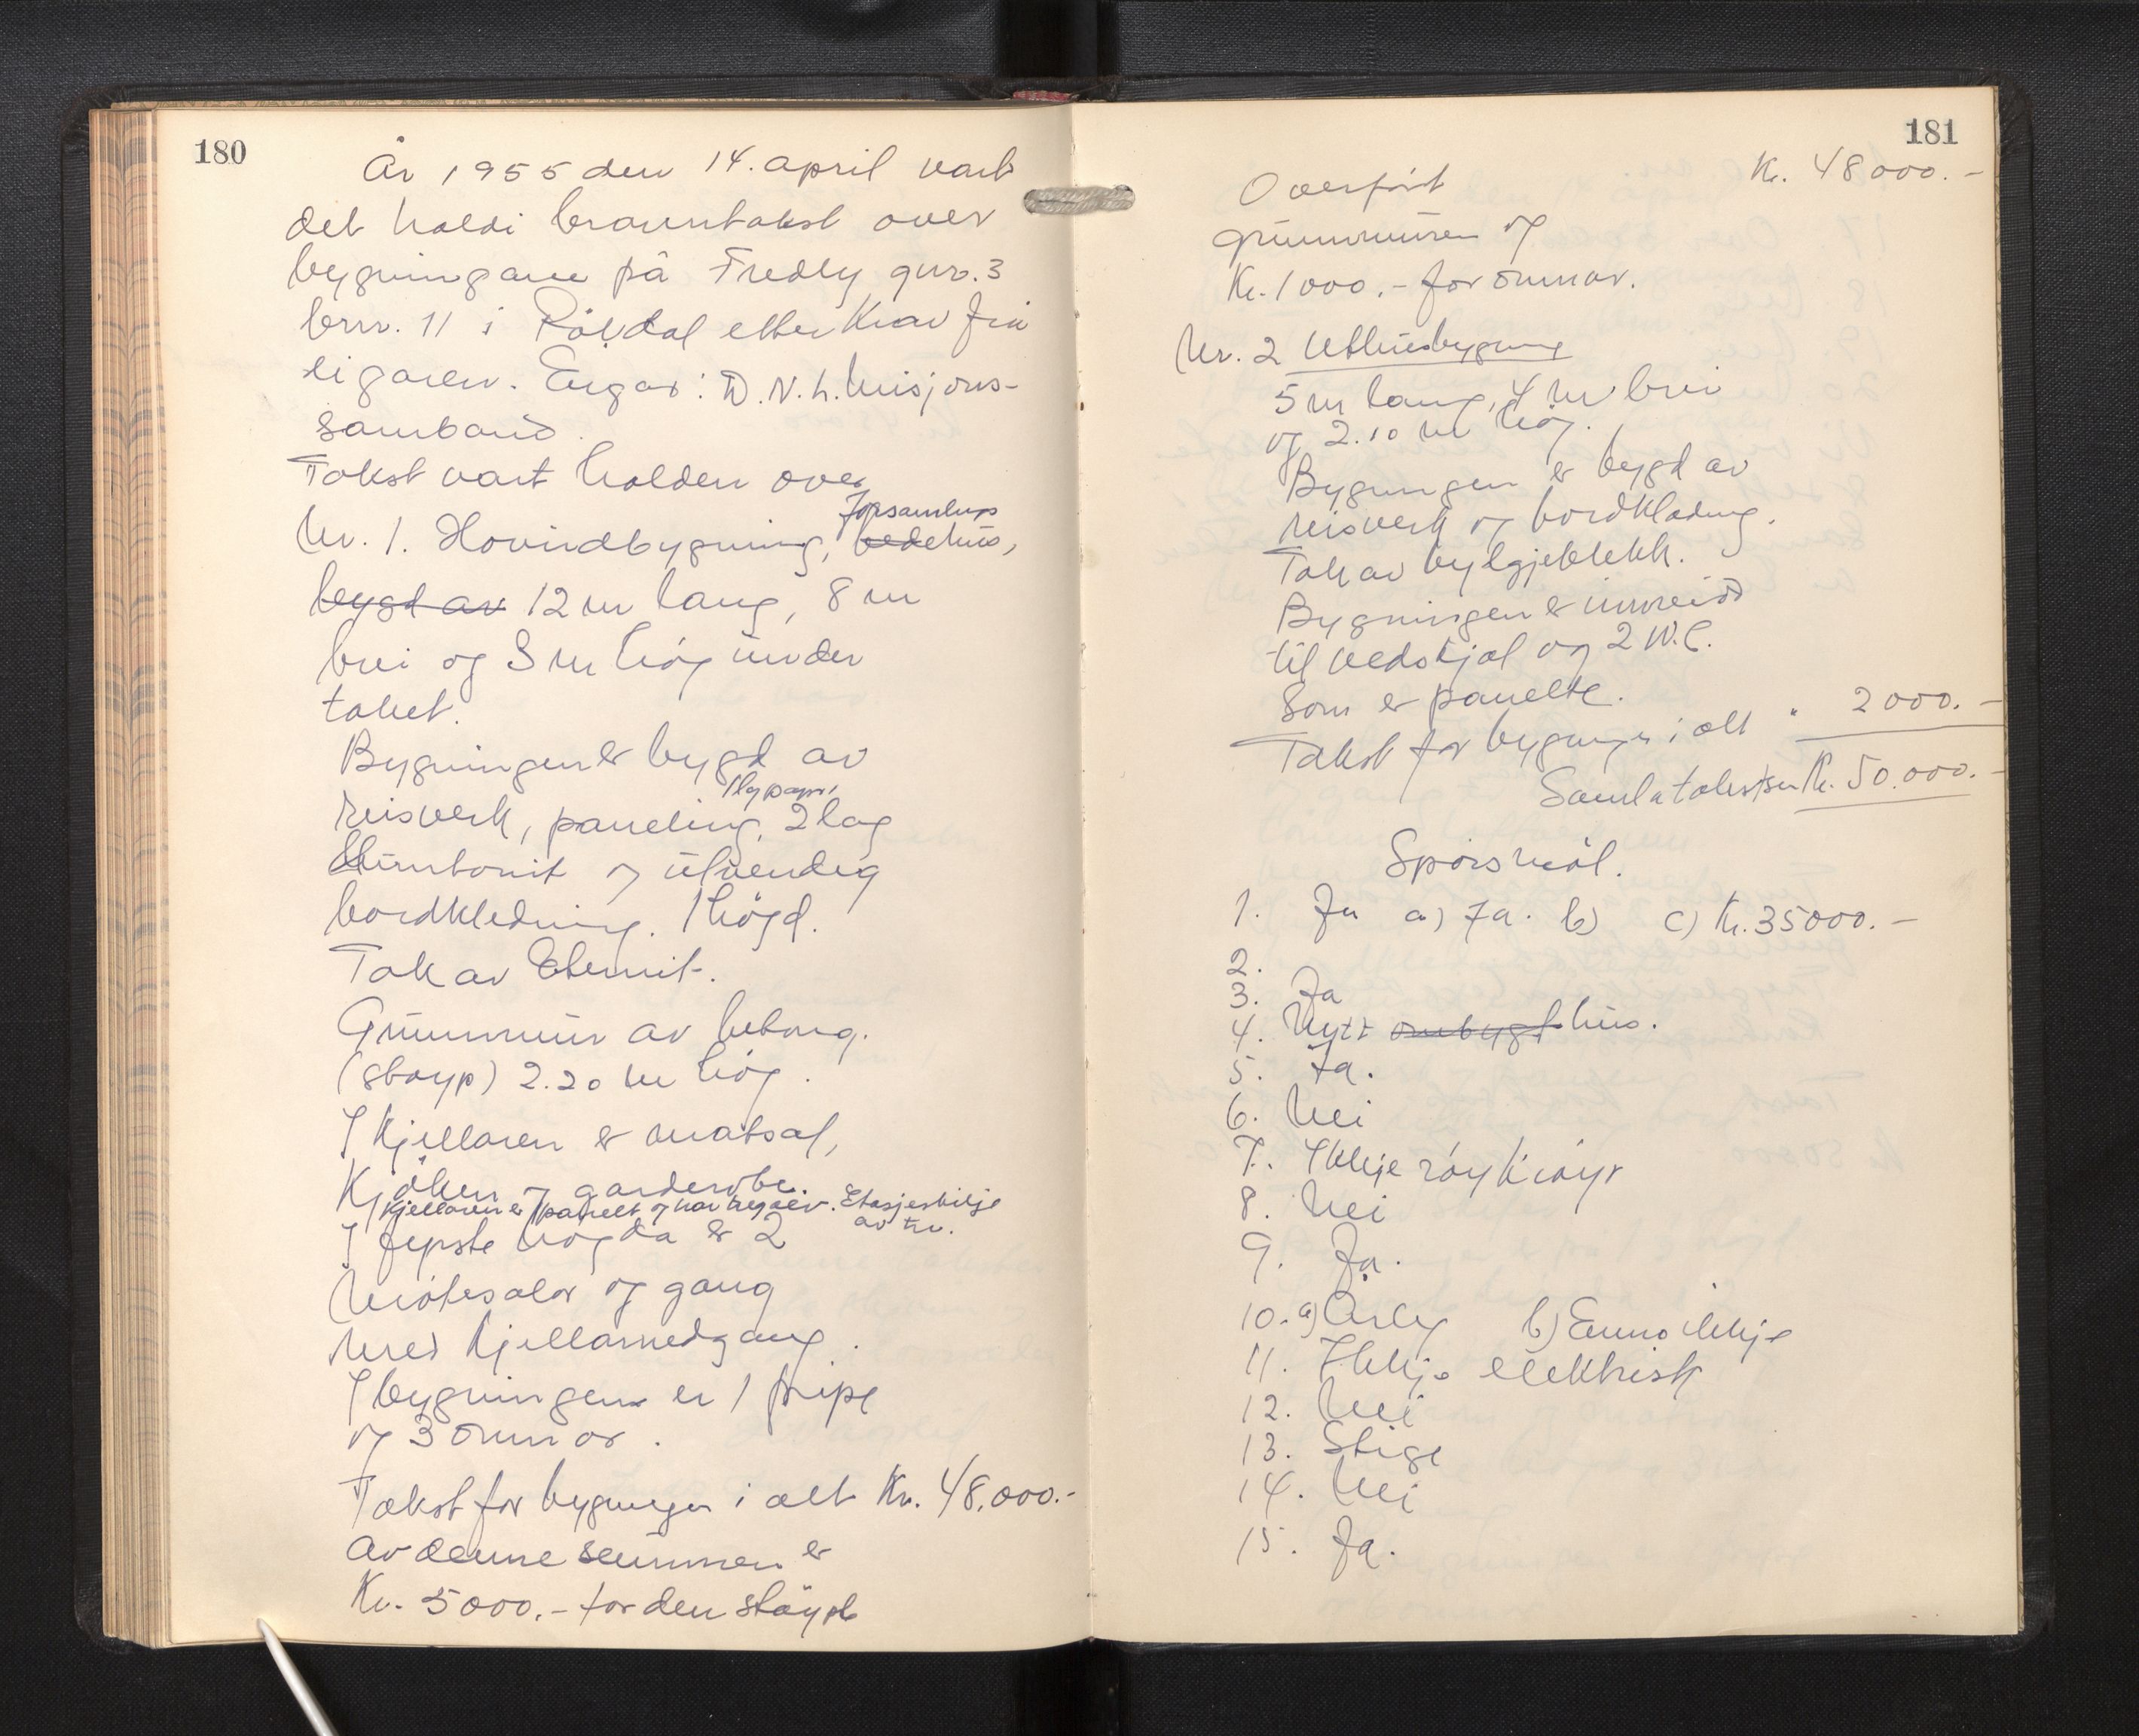 180
År 1955 den 14. april vart
det haldi branntakst over
bygningane på Fredly gnr. 3
bnr. 11 i Röldal etter krav frå
eigaren. Eigar: D.N.L. Misjons-
samband.
Takst vart halden over
Forsamlings
Nr. 1. Hovudbygning, bedehus,
bygd av 12 m lang, 8 m
brei og 3 m høg under
taket.
Bygningen er bygd av
1 lag papir,
reisverk, paneling, 2 lag
Huntonit og utvendig
bordkledning. 1 høgd.
Tak av Eternit.
Grunnmur av betong.
(støyp) 2.20 m høg.
I kjellaren er matsal,
Kjöken og garderobe.
Kjellaren er panelt og har tregolv. Etasjeskilje
av tre.
I fyrste høgda er 2
Møtesalar og gang
med kjellarnedgang.
I bygningen er 1 pipe
og 3 omnar.
Takst for bygningen i alt Kr. 48.000.-
Av denne summen er
Kr. 5000.- for den støypte
181
Overført Kr. 48000.-
grunnmuren og
Kr. 1000.- for omnar.
Nr. 2 Uthusbygning
5 m lang, 4 m brei
og 2.10 m høg.
Bygningen er bygd av
reisverk og bordkledning.
Tak av bylgjeblekk.
Bygningen er innreidd
til vedskjal og 2 W.C.
som er panelte.
Takst for bygningen i alt " 2000.-
Samla takstsum Kr. 50.000.-
Spørsmål.
1. Ja a) Ja. b) c) Kr. 35000.-
2.
3. Ja
4. Nytt ombygt hus.
5. Ja.
6. Nei
7. Ikkje røykrøyr
8. Nei
9. Ja.
10. a) Årleg b) Enno ikkje
11. Ikkje elektrisk
12. Nei
13. Stige
14. Nei
15. Ja.